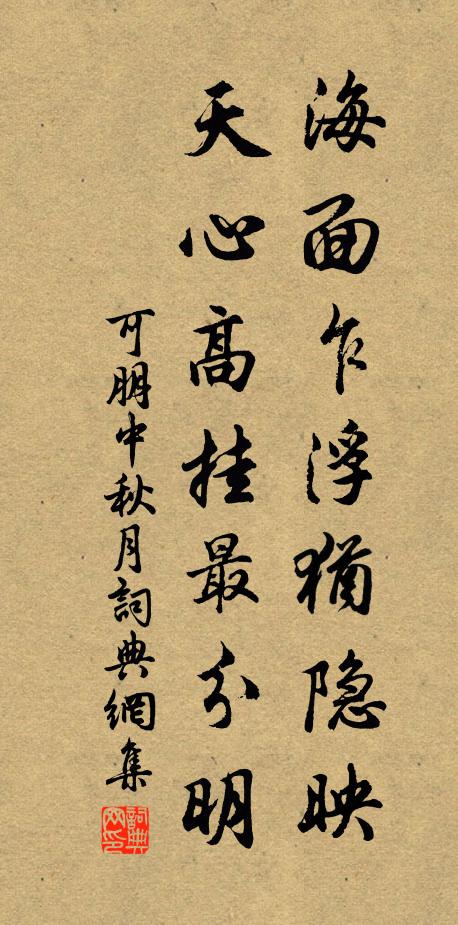 海面乍浮猶隐映
天心高挂最分明
可朋中秋月詞典網集
詞典网印